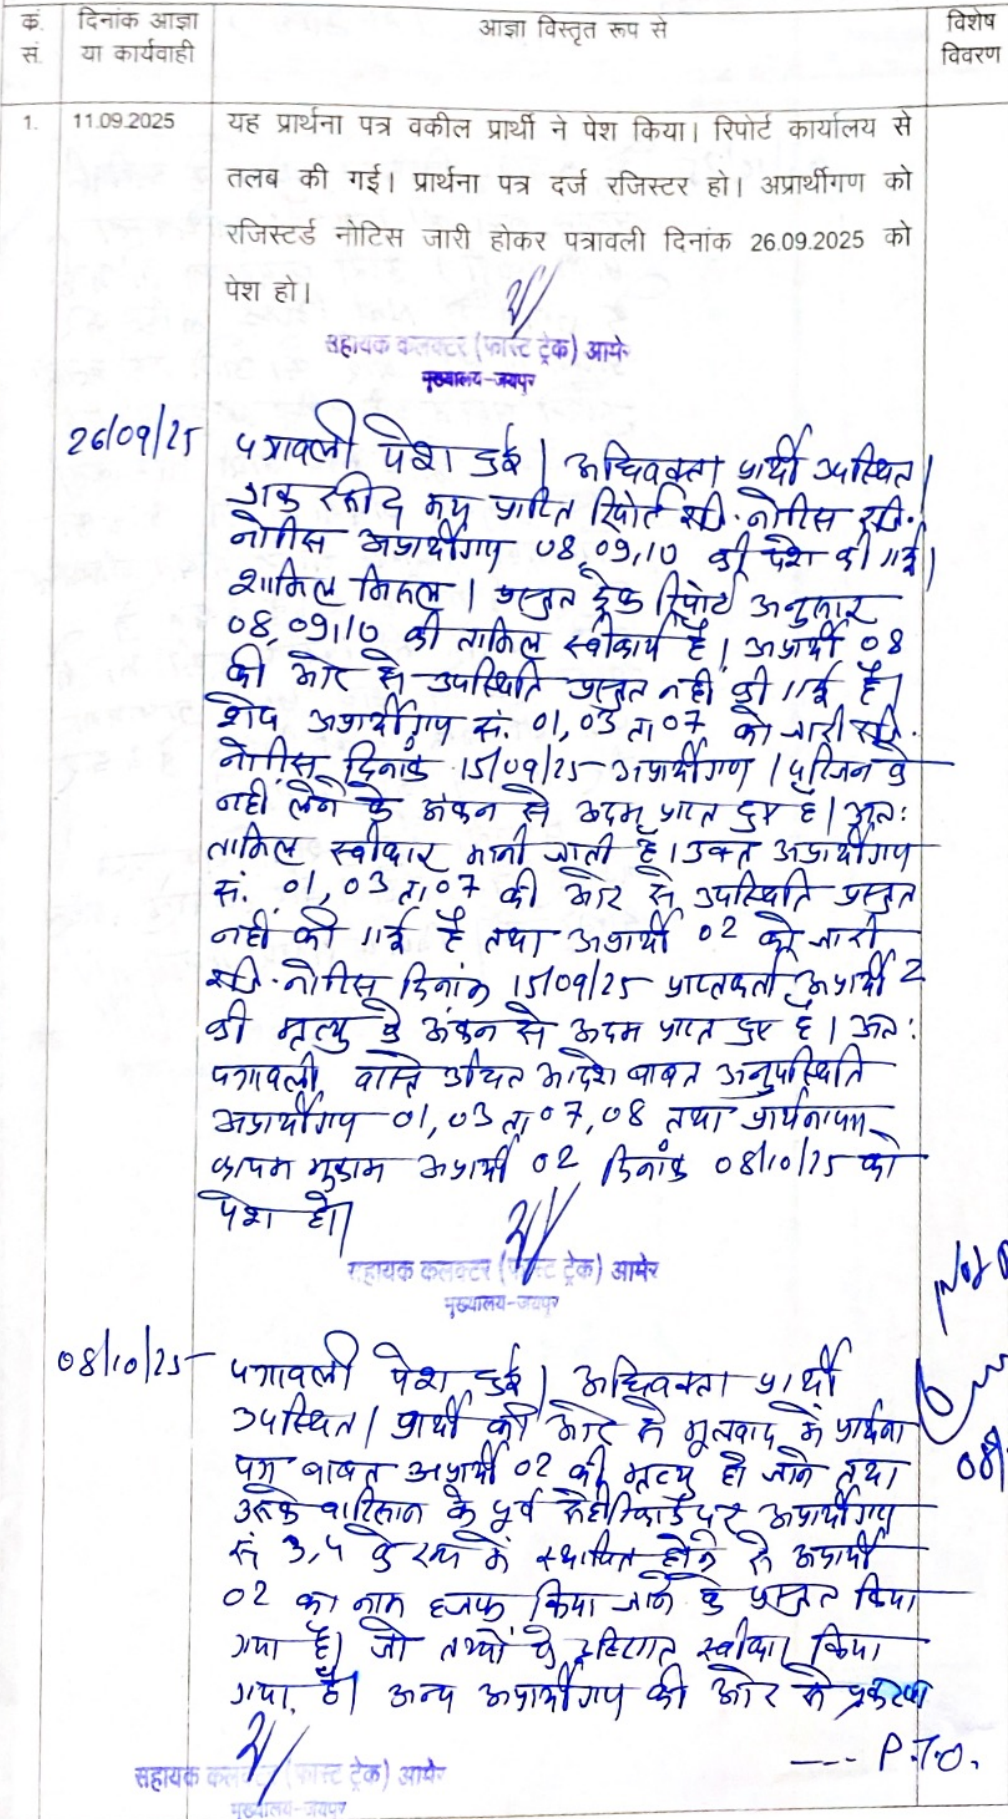 क्रं. सं.
दिनांक आज्ञा या कार्यवाही
आज्ञा विस्तृत रूप से
विशेष विवरण
1. 11.09.2025 यह प्रार्थना पत्र वकील प्रार्थी ने पेश किया। रिपोर्ट कार्यालय से
तलब की गई। प्रार्थना पत्र दर्ज रजिस्टर हो। अप्रार्थीगण को
रजिस्टर्ड नोटिस जारी होकर पत्रावली दिनांक 26.09.2025 को
पेश हो।
सहायक कलक्टर (फास्ट ट्रेक) आमेर
मुख्यालय-जयपुर
26/09/25 पत्रावली पेश हुई। अधिवक्ता प्रार्थी उपस्थित।
डाक रसीद मय प्राप्ति रिपोर्ट रजि. नोटिस रजि.
नोटिस अप्रार्थीगण 08,09,10 की पेश की गई।
शामिल मिसल। प्रस्तुत ट्रेक रिपोर्ट अनुसार
08,09,10 की तामिल स्वीकार्य है। अप्रार्थी 08
की ओर से उपस्थिति प्रस्तुत नहीं की गई है।
शेष अप्रार्थीगण सं. 01,03 ता 07 को जारी रजि.
नोटिस दिनांक 15/09/25 अप्रार्थीगण / परिजन के
नहीं लेने के अंकन से अदम प्राप्त हुए है। अतः
तामिल स्वीकार मानी जाती है। उक्त अप्रार्थीगण
सं. 01,03 ता 07 की ओर से उपस्थिति प्रस्तुत
नहीं की गई है तथा अप्रार्थी 02 को जारी
रजि. नोटिस दिनांक 15/09/25 प्राप्तकर्ता अप्रार्थी 2
की मृत्यु के अंकन से अदम प्राप्त हुए है। अतः
पत्रावली वास्ते उचित आदेश बाबत अनुपस्थिति
अप्रार्थीगण 01,03 ता 07,08 तथा प्रार्थनापत्र
कायम मुकाम अप्रार्थी 02 दिनांक 08/10/25 को
पेश हो।
सहायक कलक्टर (फास्ट ट्रेक) आमेर
मुख्यालय-जयपुर
08/10/25 पत्रावली पेश हुई। अधिवक्ता प्रार्थी
उपस्थित। प्रार्थी की ओर से मूलवाद में प्रार्थना
पत्र बाबत अप्रार्थी 02 की मृत्यु हो जाने तथा
उसके वारिसान के पूर्व से ही रिकार्ड पर अप्रार्थीगण
सं 3,4 के रूप में स्थापित होने से अप्रार्थी
02 का नाम हजफ किया जाने के प्रस्तुत किया
गया है। जो तथ्यों के स्वीकार किया
गया है। अन्य अप्रार्थीगण की ओर से प्रकरण
--- P.T.O.
सहायक कलक्टर (फास्ट ट्रेक) आमेर
मुख्यालय-जयपुर